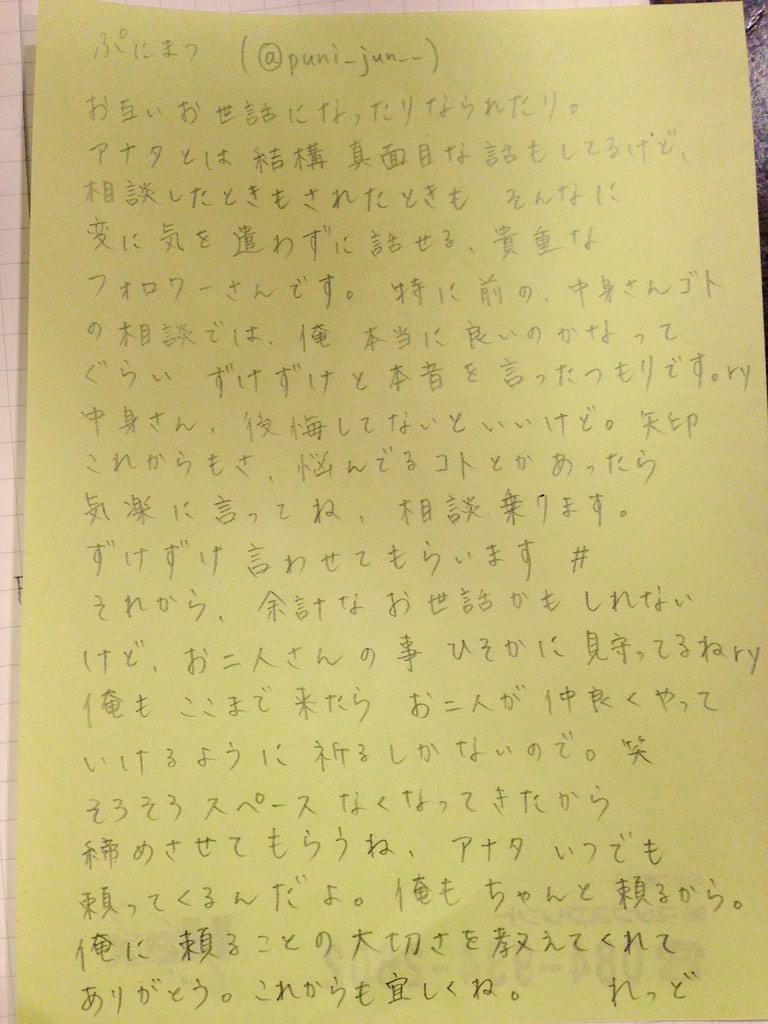 ぷにまつ (@puni_jun__)
お互いお世話になったりなられたり。
アナタとは結構真面目な話もしてるけど、
相談したときもされたときも そんなに
変に気を遣わずに話せる、貴重な
フォロワーさんです。 特に前の、中身さんゴト
の相談では、俺 本当に良いのかなって
ぐらい ずけずけと本音を言ったつもりです。ry
中身さん、後悔してないといいけど。矢印
これからもさ、悩んでるコトとかあったら
気楽に言ってね、相談乗ります。
ずけずけ 言わせてもらいます #
それから、余計なお世話かもしれない
けど、お二人さんの事 ひそかに見守ってるねry
俺もここまで来たら お二人が仲良くやって
いけるように祈るしかないので。笑
そろそろスペースなくなってきたから
締めさせてもらうね、アナタ いつでも
頼ってくるんだよ。俺もちゃんと頼るから。
俺に頼ることの大切さを教えてくれて
ありがとう。これからも宜しくね。 れっど